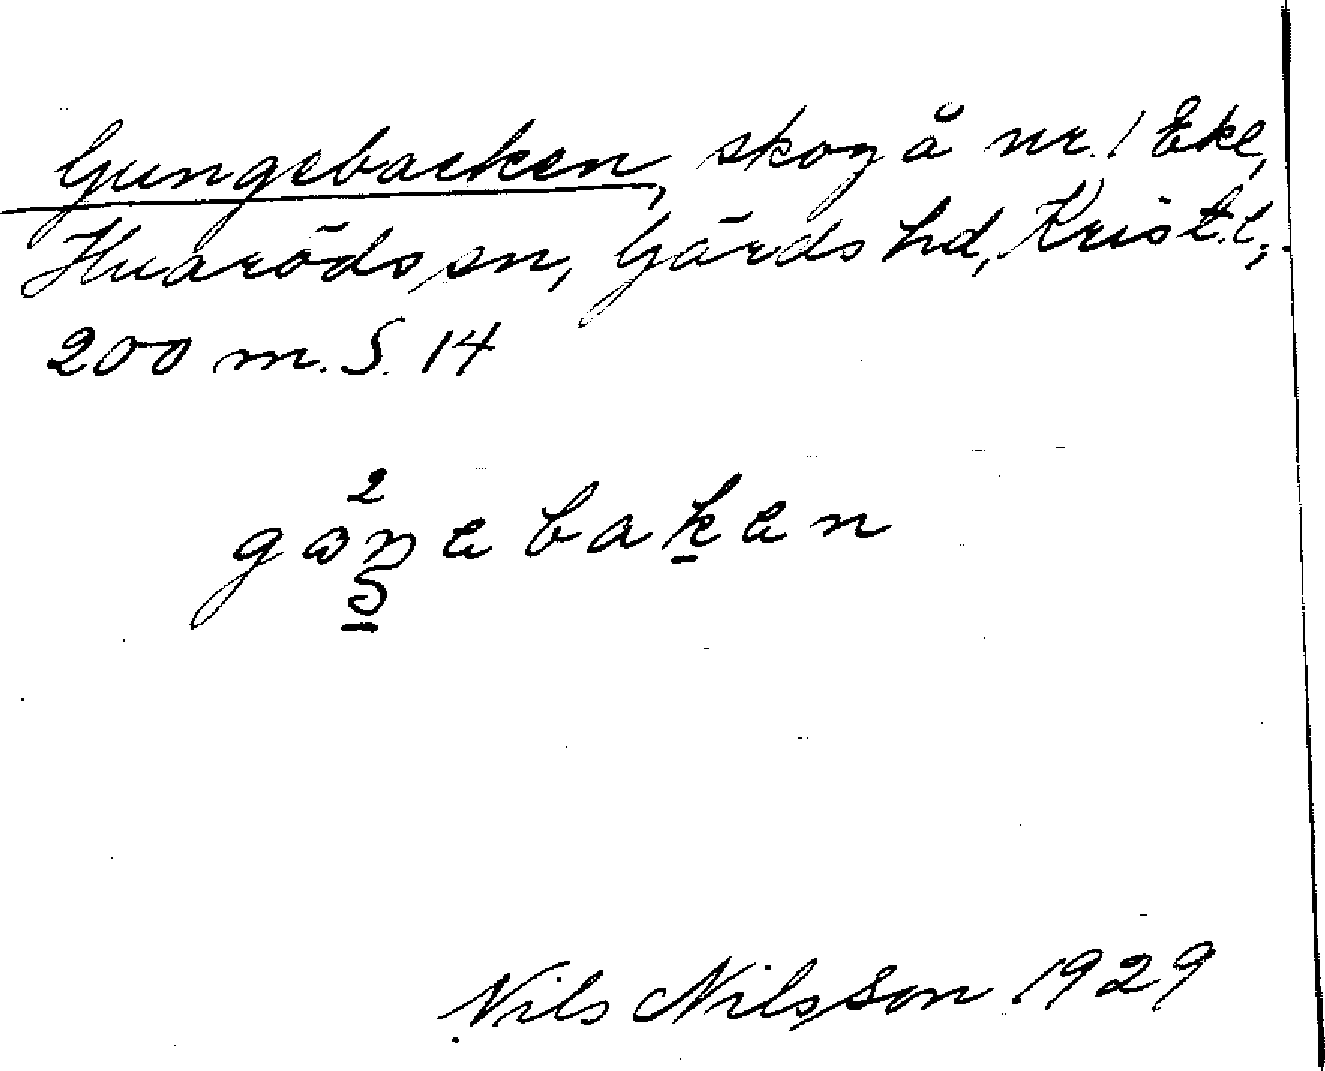 Gungebacken, skog å nr. 1 Eke,
Huaröds sn, Gärds hd, Krist. l.,
200 m. S. 14
gɷŋebaken
Nils Nilsson 1929